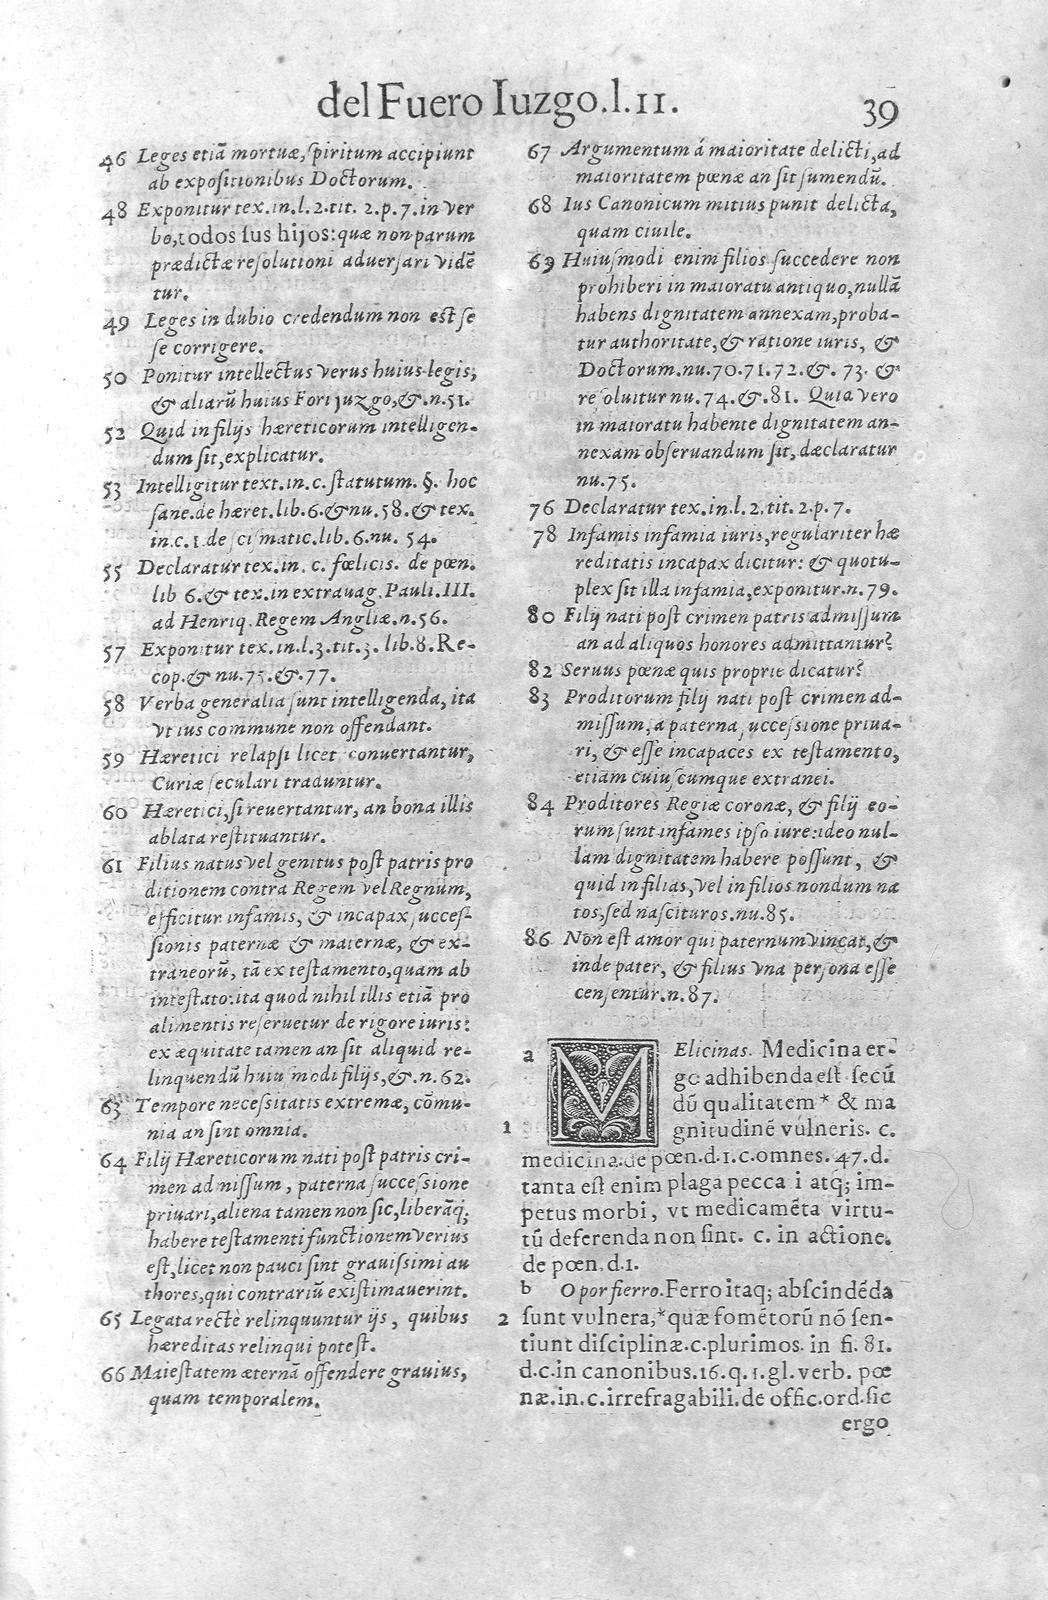 del Fuero Iuzgo.l.II. 39
46 Leges etiã mortuæ, spiritum accipiunt
ab expositionibus Doctorum.
48 Exponitur tex.in.l.2.tit. 2.p.7.in ver
bo, todos sus hijos: quæ non parum
prædictæ resolutioni adversari vidẽ
tur.
49 Leges in dubio credendum non est se
se corrigere.
50 Ponitur intellectus verus huius legis,
& aliarũ huius Fori juzgo, &.n.51.
52 Quid in filijs hæreticorum intelligen-
dum sit, explicatur.
53 Intelligitur text.in.c. statutum. §. hoc
sane.de hæret.lib.6.& nu.58.& tex.
in.c.1.de scismatic.lib.6.nu. 54.
55 Declaratur tex.in. c. fœlicis. de pœn.
lib 6.& tex.in extravag. Pauli.III.
ad Henriq. Regem Angliæ.n.56.
57 Exponitur tex.in.l.3.tit.3. lib.8.Re-
cop.& nu.75.&.77.
58 Verba generalia sunt intelligenda, ita
vt ius commune non offendant.
59 Hæretici relapsi licet conuertantur,
Curiæ seculari traduntur.
60 Hæretici, si reuertantur, an bona illis
ablata restituantur.
61 Filius natus vel genitus post patris pro
ditionem contra Regem vel Regnum,
efficitur infamis, & incapax succes-
sionis paternæ & maternæ, & ex-
traneorũ, tã ex testamento, quam ab
intestato: ita quod nihil illis etiã pro
alimentis reseruetur de rigore iuris:
ex æquitate tamen an sit aliquid re-
linquendũ huiusmodi filijs, &.n.62.
63 Tempore necessitatis extremæ, cõmu-
nia an sint omnia.
64 Filij Hæreticorum nati post patris cri-
men admissum, paterna successione
priuari, aliena tamen non sic, liberãq;
habere testamenti functionem verius
est, licet non pauci sint grauissimi au
thores, qui contrariũ existimauerint.
65 Legata rectè relinquuntur ijs, quibus
hæreditas relinqui potest.
66 Maiestatem æternã offendere grauius,
quam temporalem.
67 Argumentum á maioritate delicti, ad
maioritatem pœnæ an sit sumendũ.
68 Ius Canonicum mitius punit delicta,
quam ciuile.
69 Huiusmodi enim filios succedere non
prohiberi in maioratu antiquo, nullã
habens dignitatem annexam, proba-
tur authoritate, & ratione iuris, &
Doctorum.nu.70.71.72.&. 73. &
resoluitur nu.74.&.81. Quid vero
in maioratu habente dignitatem an-
nexam obseruandum sit, dæclaratur
nu.75.
76 Declaratur tex.in.l.2.tit.2.p.7.
78 Infamis infamia iuris, regulariter hæ
reditatis incapax dicitur: & quotu-
plex sit illa infamia, exponitur.n.79.
80 Filij nati post crimen patris admissum
an ad aliquos honores admittantur?
82 Seruus pœnæ quis proprie dicatur?
83 Proditorum filij nati post crimen ad-
missum, a paterna successione priua-
ri, & esse incapaces ex testamento,
etiam cuiuscumque extranei.
84 Proditores Regiæ coronæ, & filij eo-
rum sunt infames ipso iure: ideo nul-
lam dignitatem habere possunt, &
quid in filias, vel in filios nondum na
tos, sed nascituros.nu.85.
86 Non est amor qui paternum vincat, &
inde pater, & filius vna persona esse
censentur.n.87.
a MElicinas. Medicina er-
go adhibenda est secũ
dũ qualitatem * & ma
1 gnitudinẽ vulneris. c.
medicina.de pœn.d.1.c.omnes. 47.d.
tanta est enim plaga peccati atq; im-
petus morbi, vt medicamẽta virtu-
tũ deferenda non sint. c. in actione.
de pœn.d.1.
b O por fierro. Ferro itaq; abscindẽda
2 sunt vulnera, * quæ fomẽtorũ nõ sen-
tiunt disciplinæ.c.plurimos. in fi. 81.
d.c.in canonibus.16.q.1.gl.verb. pœ
næ.in.c.irrefragabili.de offic.ord.sic
ergo